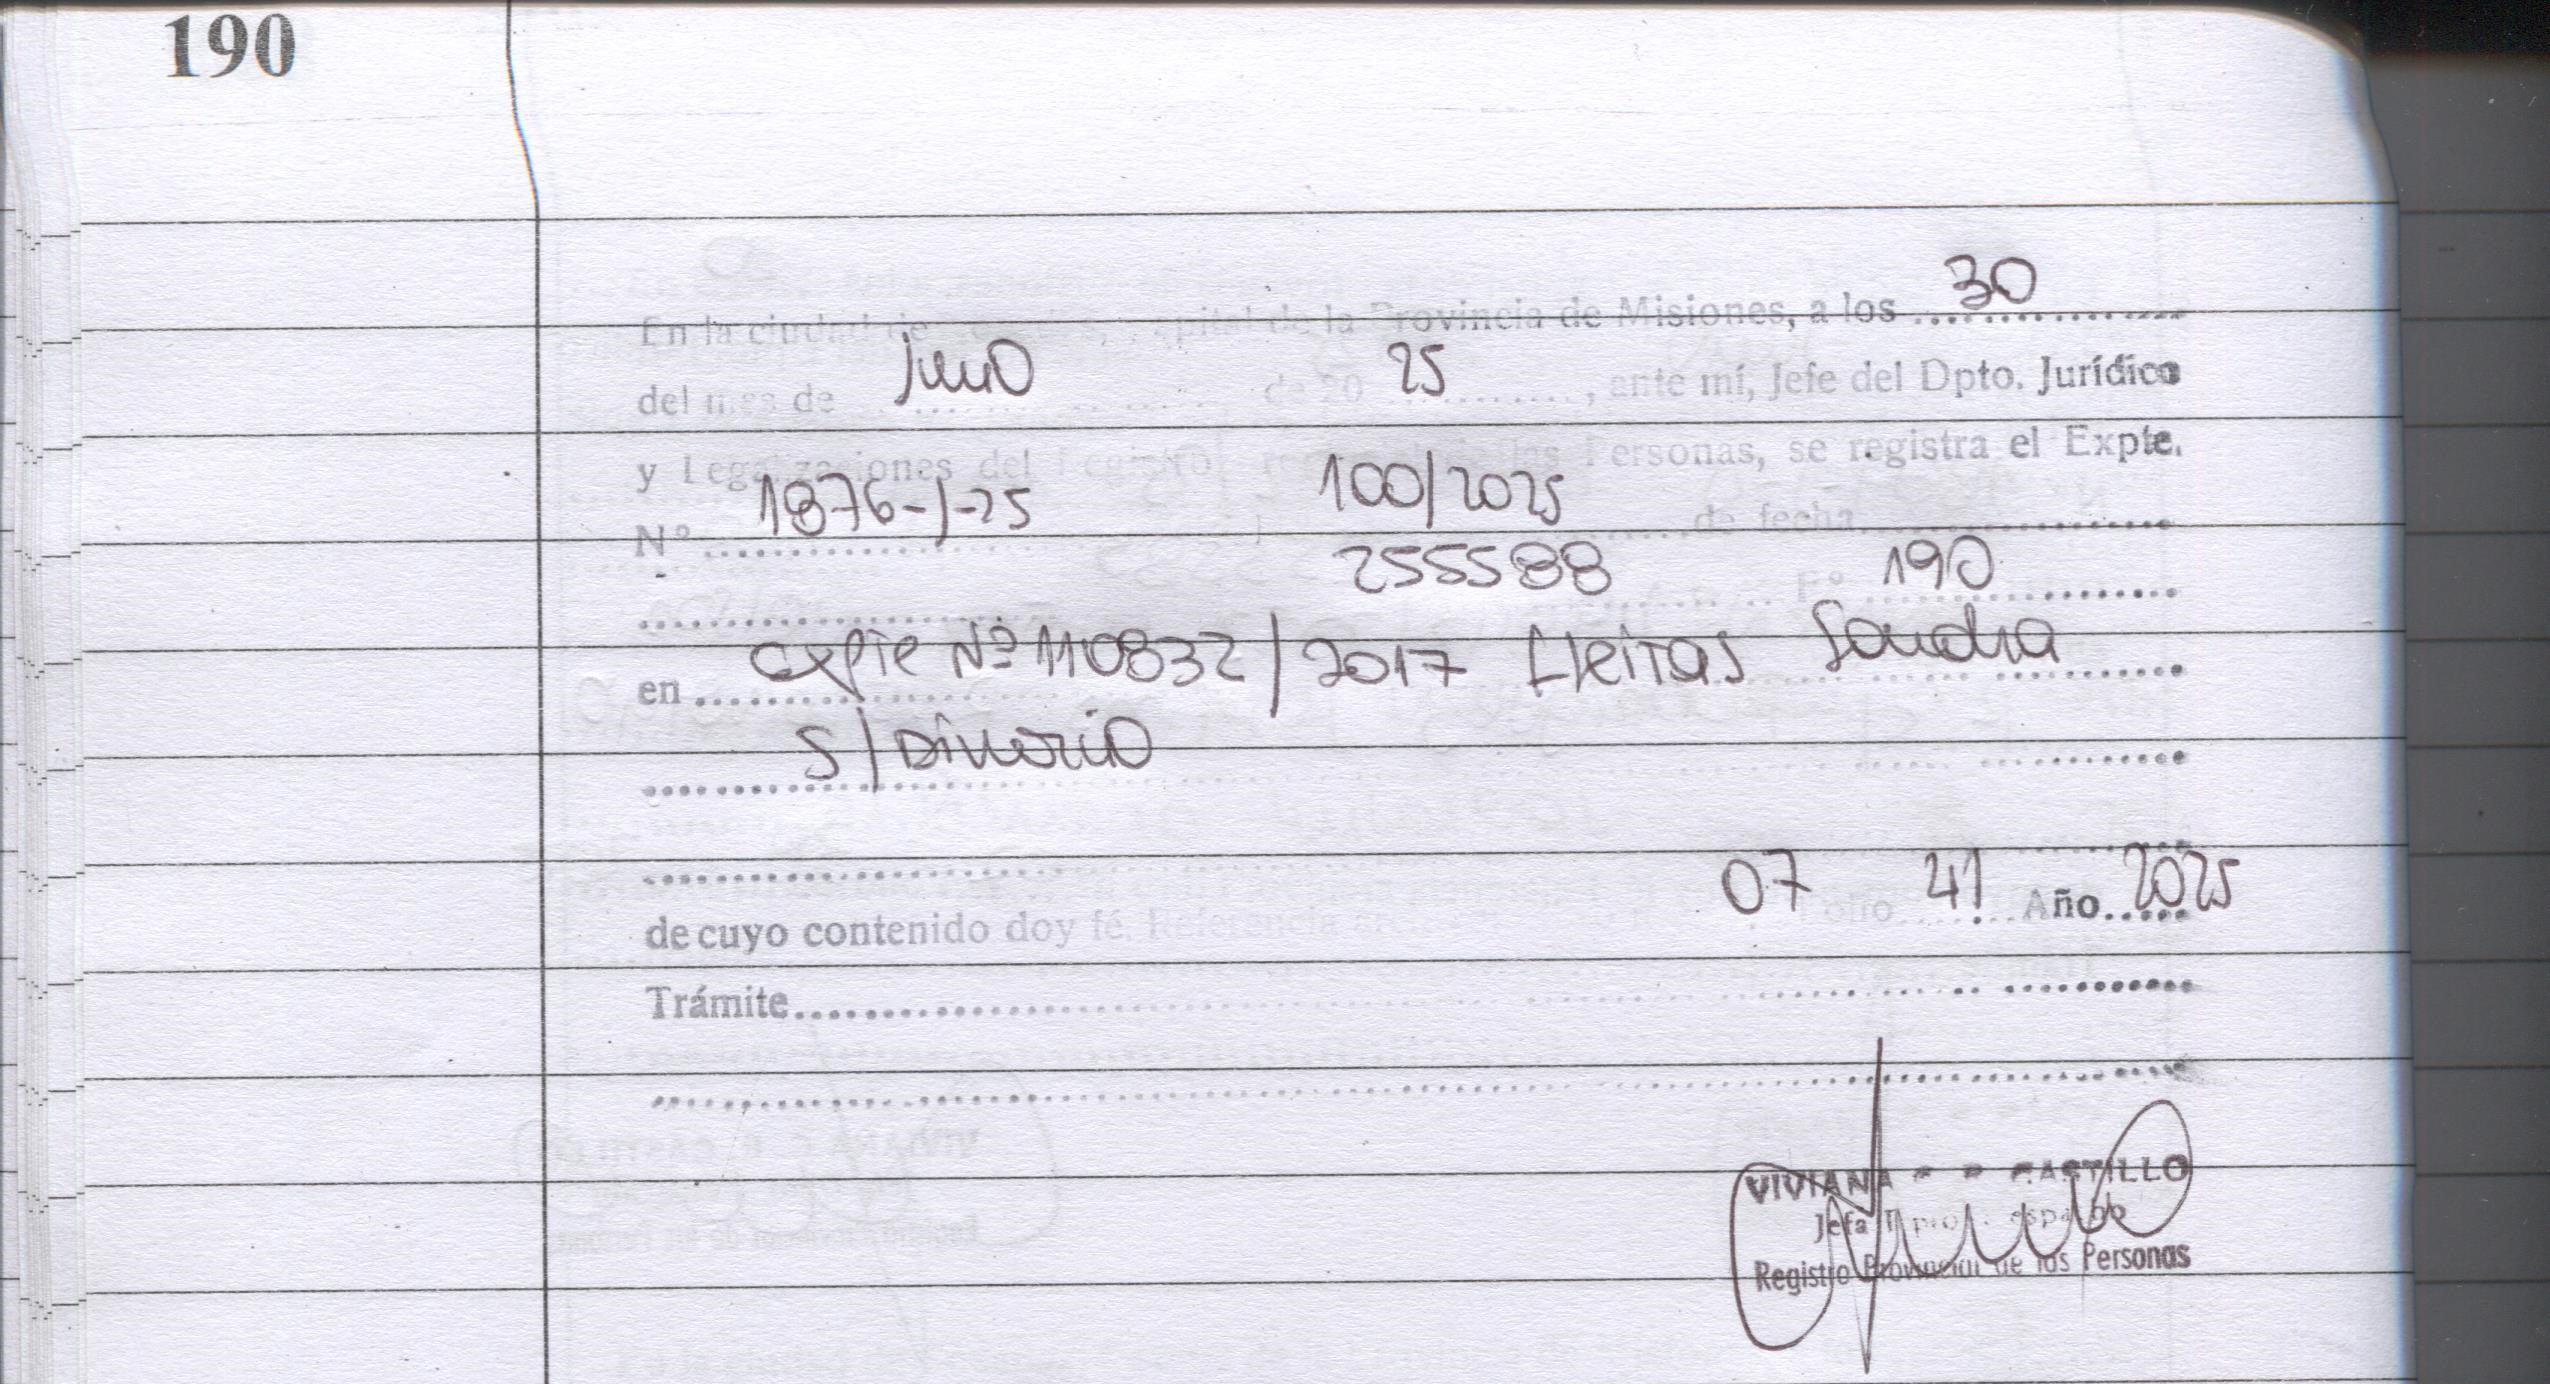 190
En la ciudad de capital de la Provincia de Misiones, a los 30
del mes de junio de 20 25, ante mí, Jefe del Dpto. Jurídico
y Legalizaciones del Registro las Personas, se registra el Expte.
Nº 1876-J-25 100/2025 de fecha
255588 Fº 190
en expte Nº 110832/2017 Lleitas Sandra
S/Divorcio
de cuyo contenido doy fé. Referencia 07 Folio 41 Año 2025
Trámite
VIVIANA CASTILLO
Jefa
Registro Provincial de las Personas